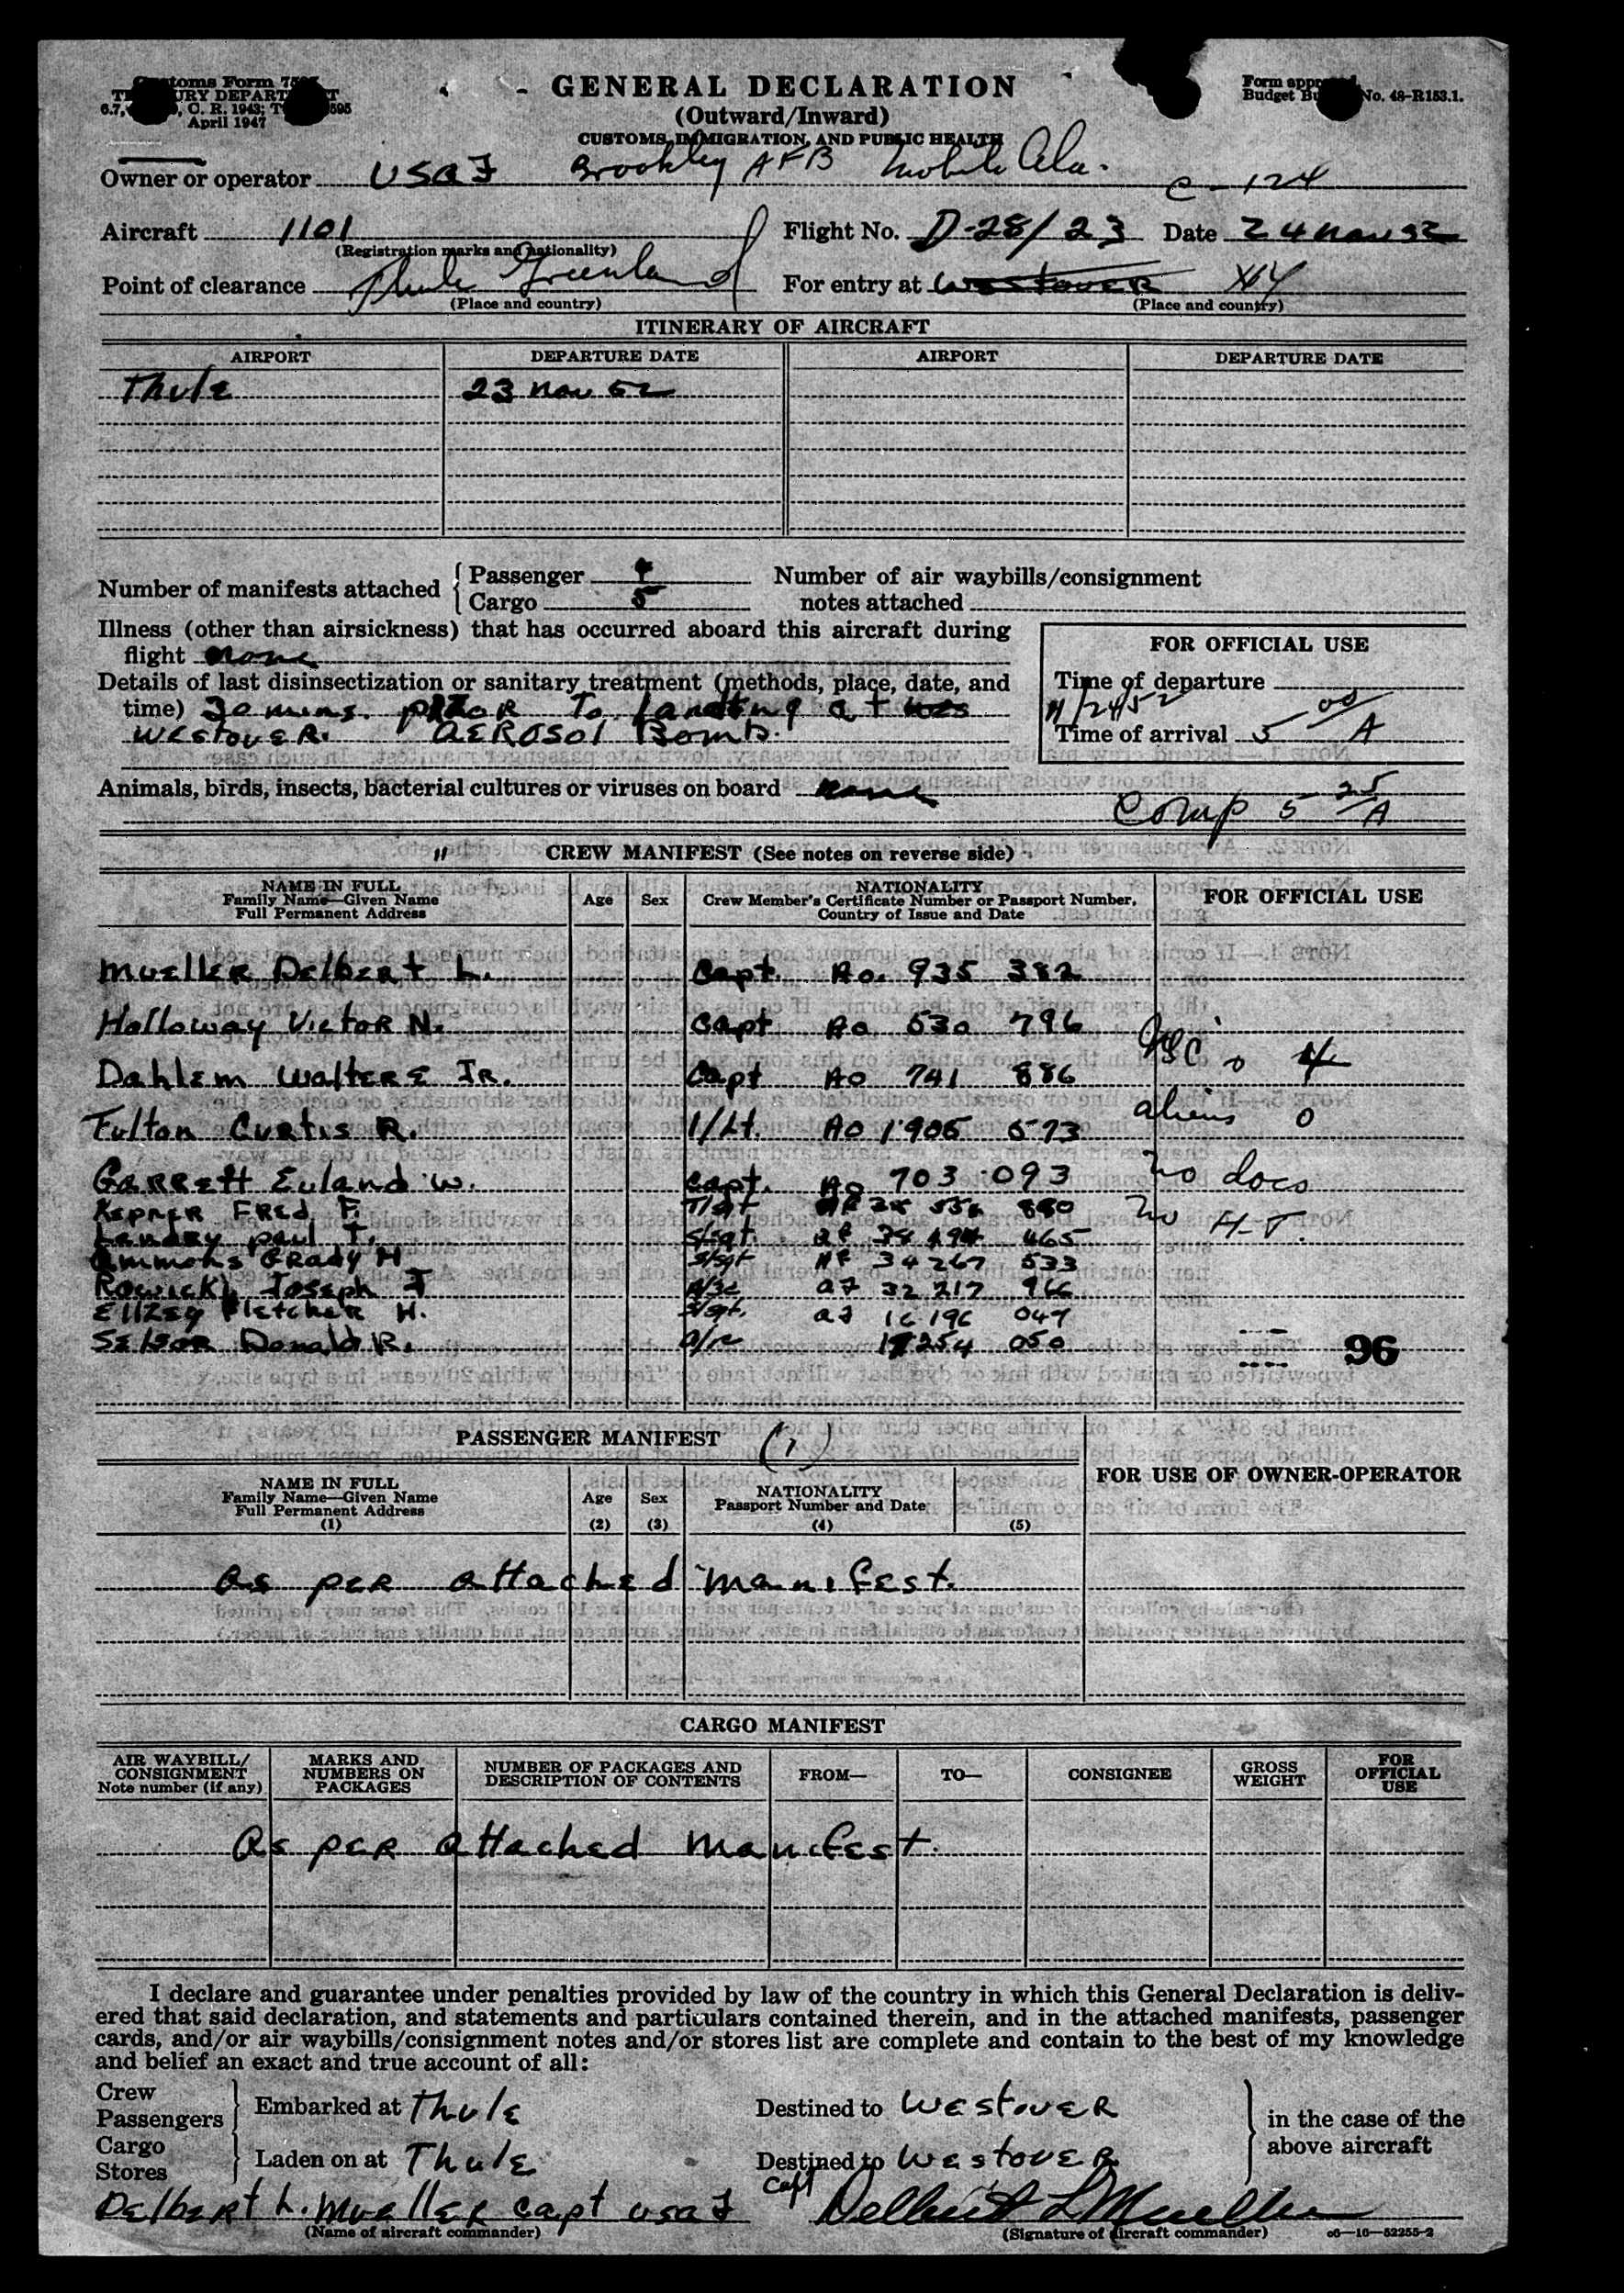 GENERAL DECLARATION
(Outward/Inward)
CUSTOMS, IMMIGRATION, AND PUBLIC HEALTH
Customs Form
April 1947
Form approved
Budget No. 48-R153.1.
Owner or operator USAF Brookley AFB Mobile Ala. C-124
Aircraft 1101 Flight No. D-28/23 Date 24 Nov 52
(Registration marks and nationality)
Point of clearance Thule Greenland For entry at Westover
(Place and country) (Place and country)
ITINERARY OF AIRCRAFT
AIRPORT DEPARTURE DATE AIRPORT DEPARTURE DATE
Thule 23 Nov 52
Number of manifests attached { Passenger
Cargo 5
Number of air waybills/consignment
notes attached
Illness (other than airsickness) that has occurred aboard this aircraft during
flight none
Details of last disinsectization or sanitary treatment (methods, place, date, and
time) 30 mins. prior To landing at
Westover. Aerosol Bomb.
FOR OFFICIAL USE
Time of departure
11/24/52
Time of arrival 5 00/A
Animals, birds, insects, bacterial cultures or viruses on board none
Comp 5 25/A
CREW MANIFEST (See notes on reverse side)
NAME IN FULL
Family Name—Given Name
Full Permanent Address
Age Sex
NATIONALITY
Crew Member's Certificate Number or Passport Number,
Country of Issue and Date
FOR OFFICIAL USE
Mueller Delbert L. Capt. Ao. 935 382
Holloway Victor N. Capt Ao 530 796
Dahlem Walter E Jr. Capt Ao 741 886
Fulton Curtis R. 1/Lt. AO 1906 573
Garrett Euland W. Capt. Ao 703 093
Fred F. T/Sgt
Landry Paul T. S/Sgt. 465
Ammons Grady H S/Sgt AF 34 267 533
Joseph J AF 32 217 966
Ellzey Fletcher H. S/Sgt. AF 16 196 047
Donald R. 254 050
USC o 4
aliens 0
no docs
no H-T.
96
PASSENGER MANIFEST (1)
NAME IN FULL
Family Name—Given Name
Full Permanent Address
(1)
Age
(2)
Sex
(3)
NATIONALITY
Passport Number and Date
(4) (5)
FOR USE OF OWNER-OPERATOR
As per attached manifest.
CARGO MANIFEST
AIR WAYBILL/
CONSIGNMENT
Note number (if any)
MARKS AND
NUMBERS ON
PACKAGES
NUMBER OF PACKAGES AND
DESCRIPTION OF CONTENTS
FROM— TO— CONSIGNEE
GROSS
WEIGHT
FOR
OFFICIAL
USE
As per attached manifest.
I declare and guarantee under penalties provided by law of the country in which this General Declaration is deliv-
ered that said declaration, and statements and particulars contained therein, and in the attached manifests, passenger
cards, and/or air waybills/consignment notes and/or stores list are complete and contain to the best of my knowledge
and belief an exact and true account of all:
Crew
Passengers
Embarked at Thule Destined to Westover
Cargo
Stores
Laden on at Thule Destined to Westover
in the case of the
above aircraft
Delbert L. Mueller Capt USAF Capt Delbert L Mueller
(Name of aircraft commander) (Signature of aircraft commander)
c6—16—52255-2